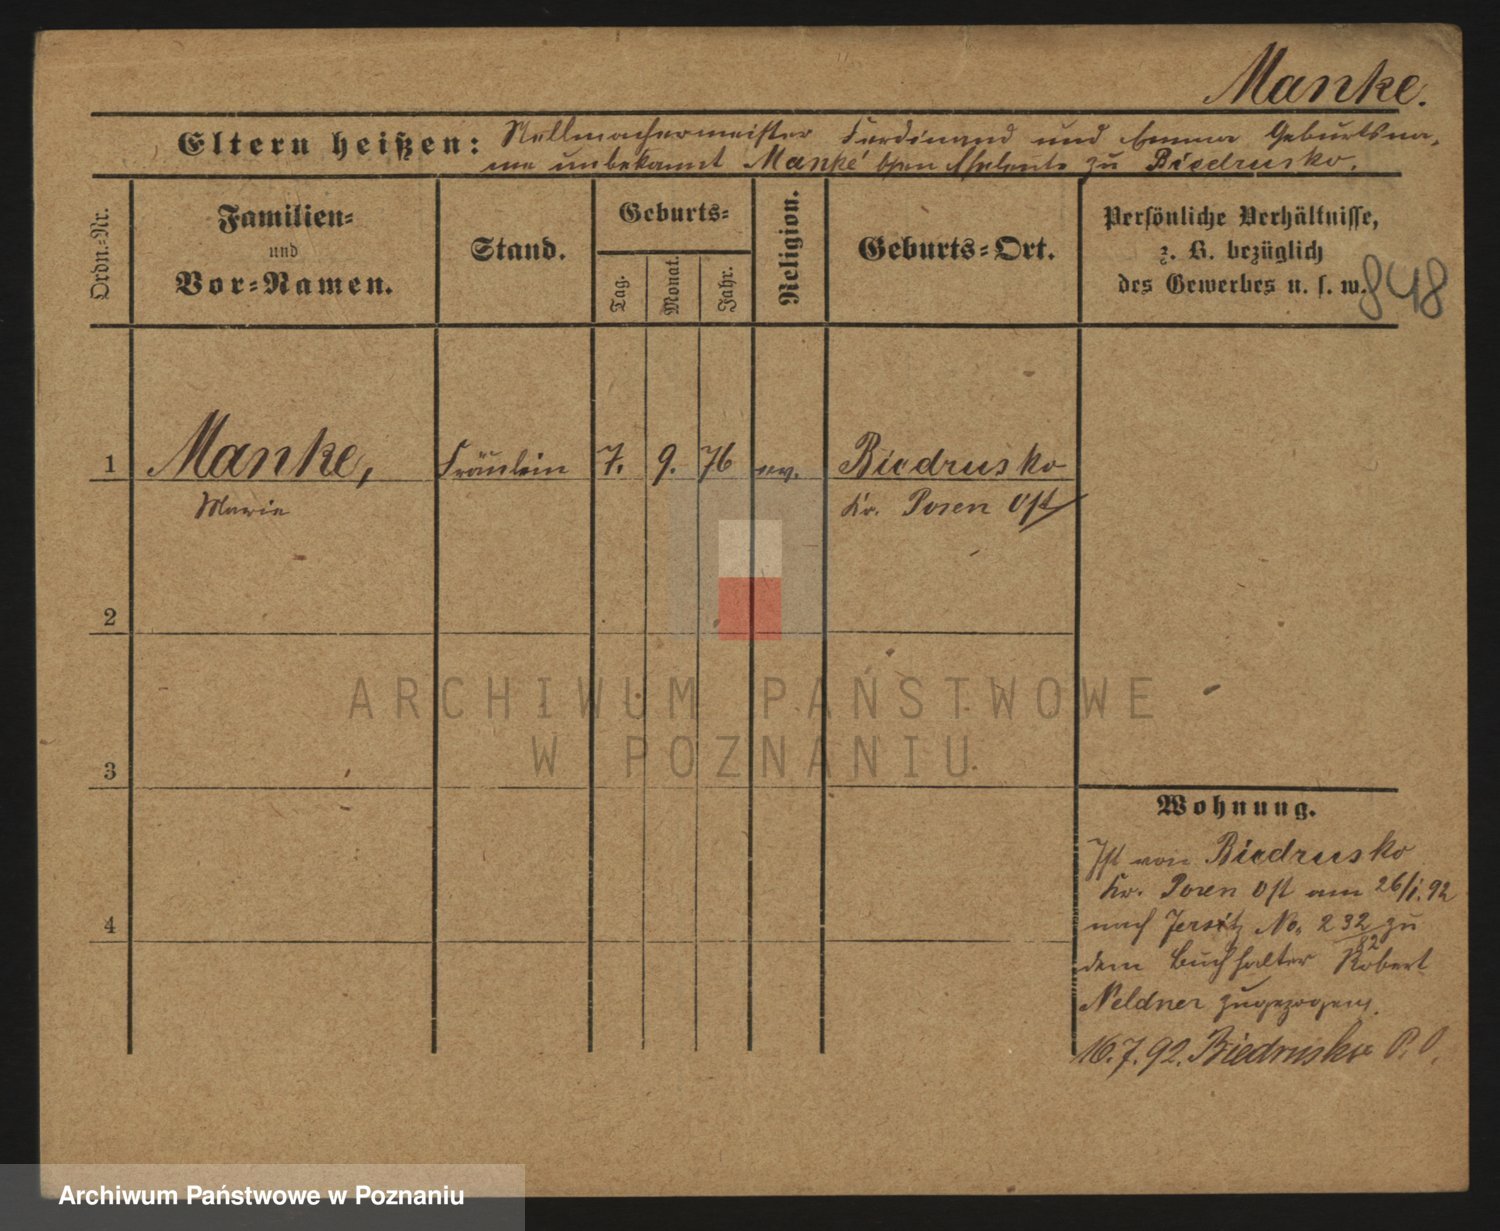 Manke.
Eltern heißen: Stellmachermeister Ferdinand und Emma Geburtsna-
me unbekannt Manke' Eheleute zu Biedrusko.
Ordn.-Nr.
Familien-
und
Vor-Namen.
Stand.
Geburts-
Tag.
Monat.
Jahr.
Religion.
Geburts-Ort.
Persönliche Verhältnisse,
z. B. bezüglich
des Gewerbes u. s. w.
848
1 Manke, Fräulein 7. 9. 76 ev. Biedrusko
Marie Kr. Posen Ost
2
3
4
ARCHIWUM PAŃSTWOWE
W POZNANIU
Wohnung.
Ist von Biedrusko
Kr. Posen Ost am 26/1. 92
nach Jersitz No. 232 zu
82
dem Buchhalter Robert
Neldner zugezogen.
16.7.92. Biedrusko P. O.
Archiwum Państwowe w Poznaniu